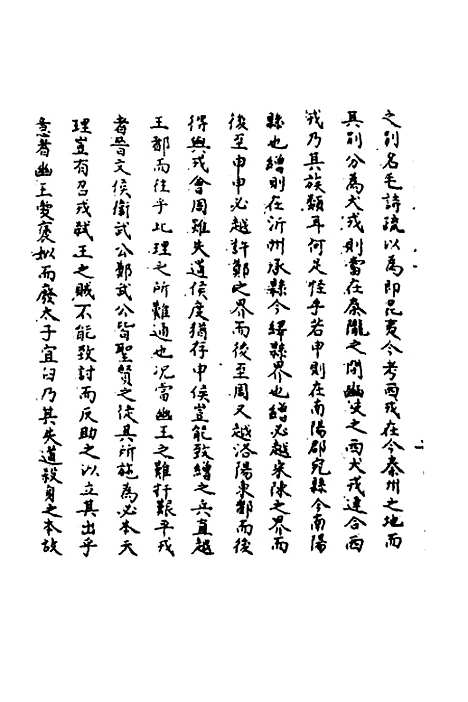 之别名毛詩疏以為即昆夷今考西戎在今秦州之地而
其别分為犬戎則當在秦隴之間幽岐之西犬戎連合西
戎乃其族類耳何足怪乎若申則在南陽郡宛縣今南陽
縣也繒則在沂州承縣今嶧縣界也繒必越宋陳之界而
後至申申必越許鄭之界而後至周又越洛陽東都而後
得與戎會周雖失道侯度猶存申侯豈能致繒之兵直越
王都而往乎此理之所難通也况當幽王之難扞艱平戎
者晉文侯衛武公鄭武公皆聖賢之徒其所施為必本天
理豈有召戎弑王之賊不能致討而反助之以立其出乎
意者幽王嬖褒姒而廢太子宜臼乃其失道殺身之本故